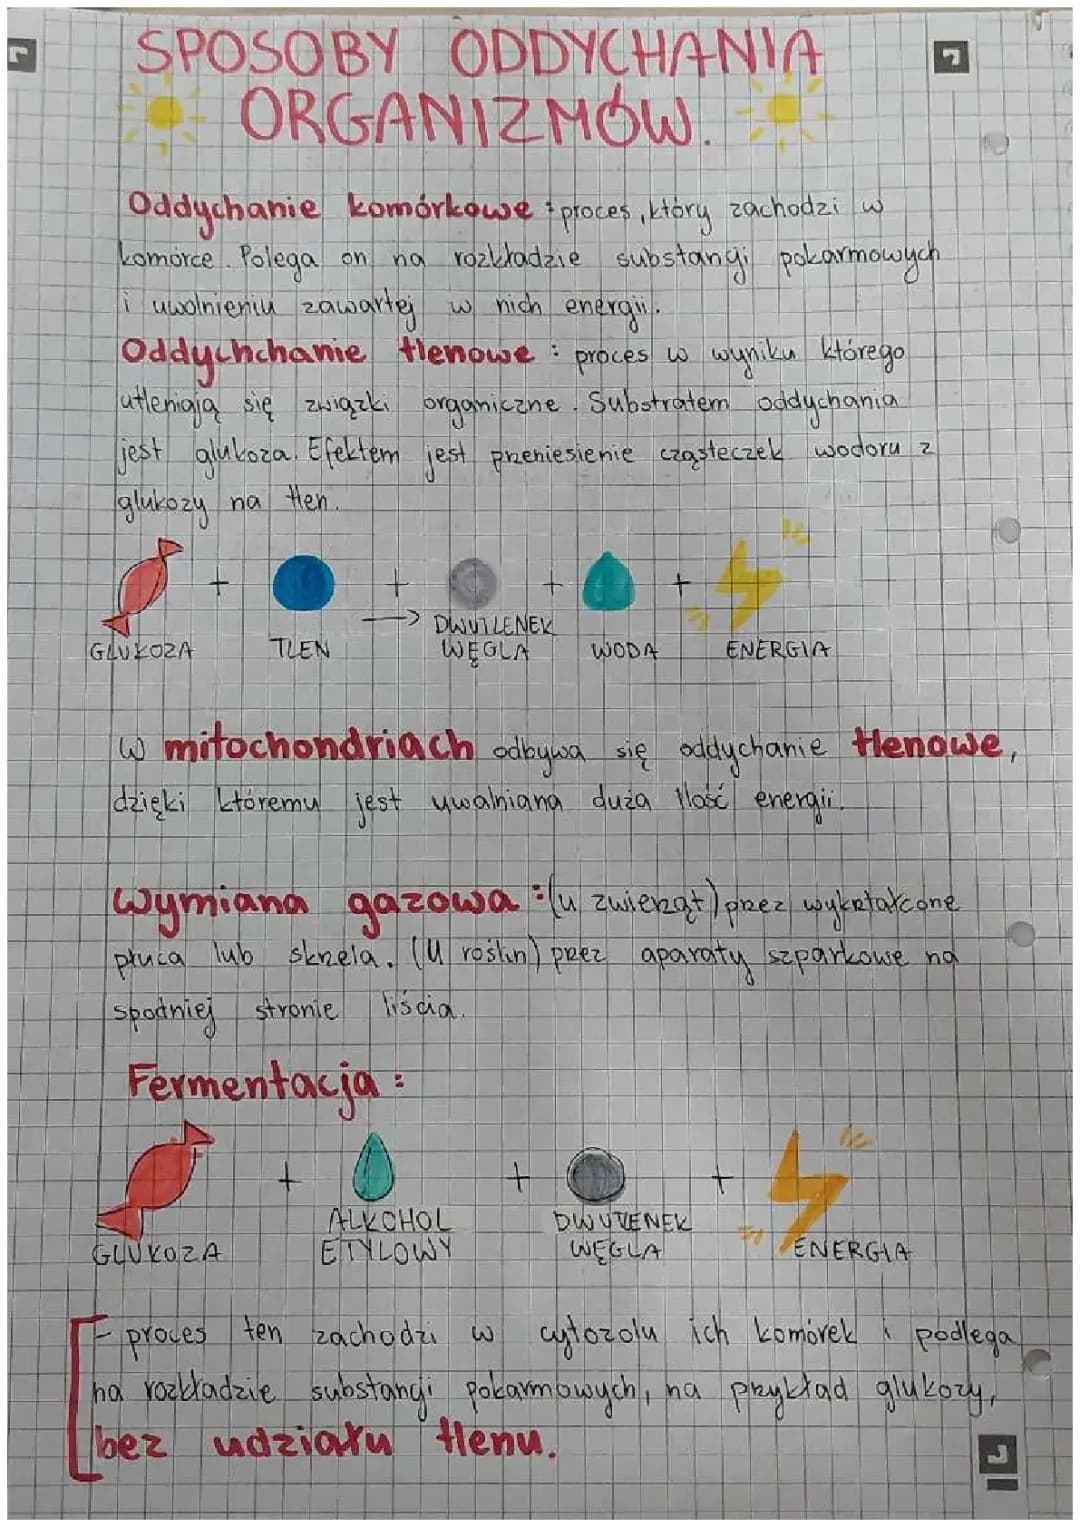 SPOSOBY ODDYCHANIA
ORGANIZMÓW.
Oddychanie komórkowe : proces, który zachodzi w
komórce. Polega on na rozkładzie substancji pokarmowych
i uwolnieniu zawartej w nich energii.
Oddychchanie tlenowe : proces w wyniku którego
utleniają się związki organiczne. Substratem oddychania
jest glukoza. Efektem jest przeniesienie cząsteczek wodoru z
glukozy na tlen.
+ + + +
GLUKOZA TLEN → DWUTLENEK WĘGLA WODA ENERGIA
W mitochondriach odbywa się oddychanie tlenowe,
dzięki któremu jest uwalniana duża ilość energii.
Wymiana gazowa : (u zwierząt) przez wykształcone
płuca lub skrzela. (U roślin) przez aparaty szparkowe na
spodniej stronie liścia.
Fermentacja :
+ + +
GLUKOZA ALKOHOL ETYLOWY DWUTLENEK WĘGLA ENERGIA
- proces ten zachodzi w cytozolu ich komórek i podlega
na rozkładzie substancji pokarmowych, na przykład glukozy,
bez udziału tlenu.